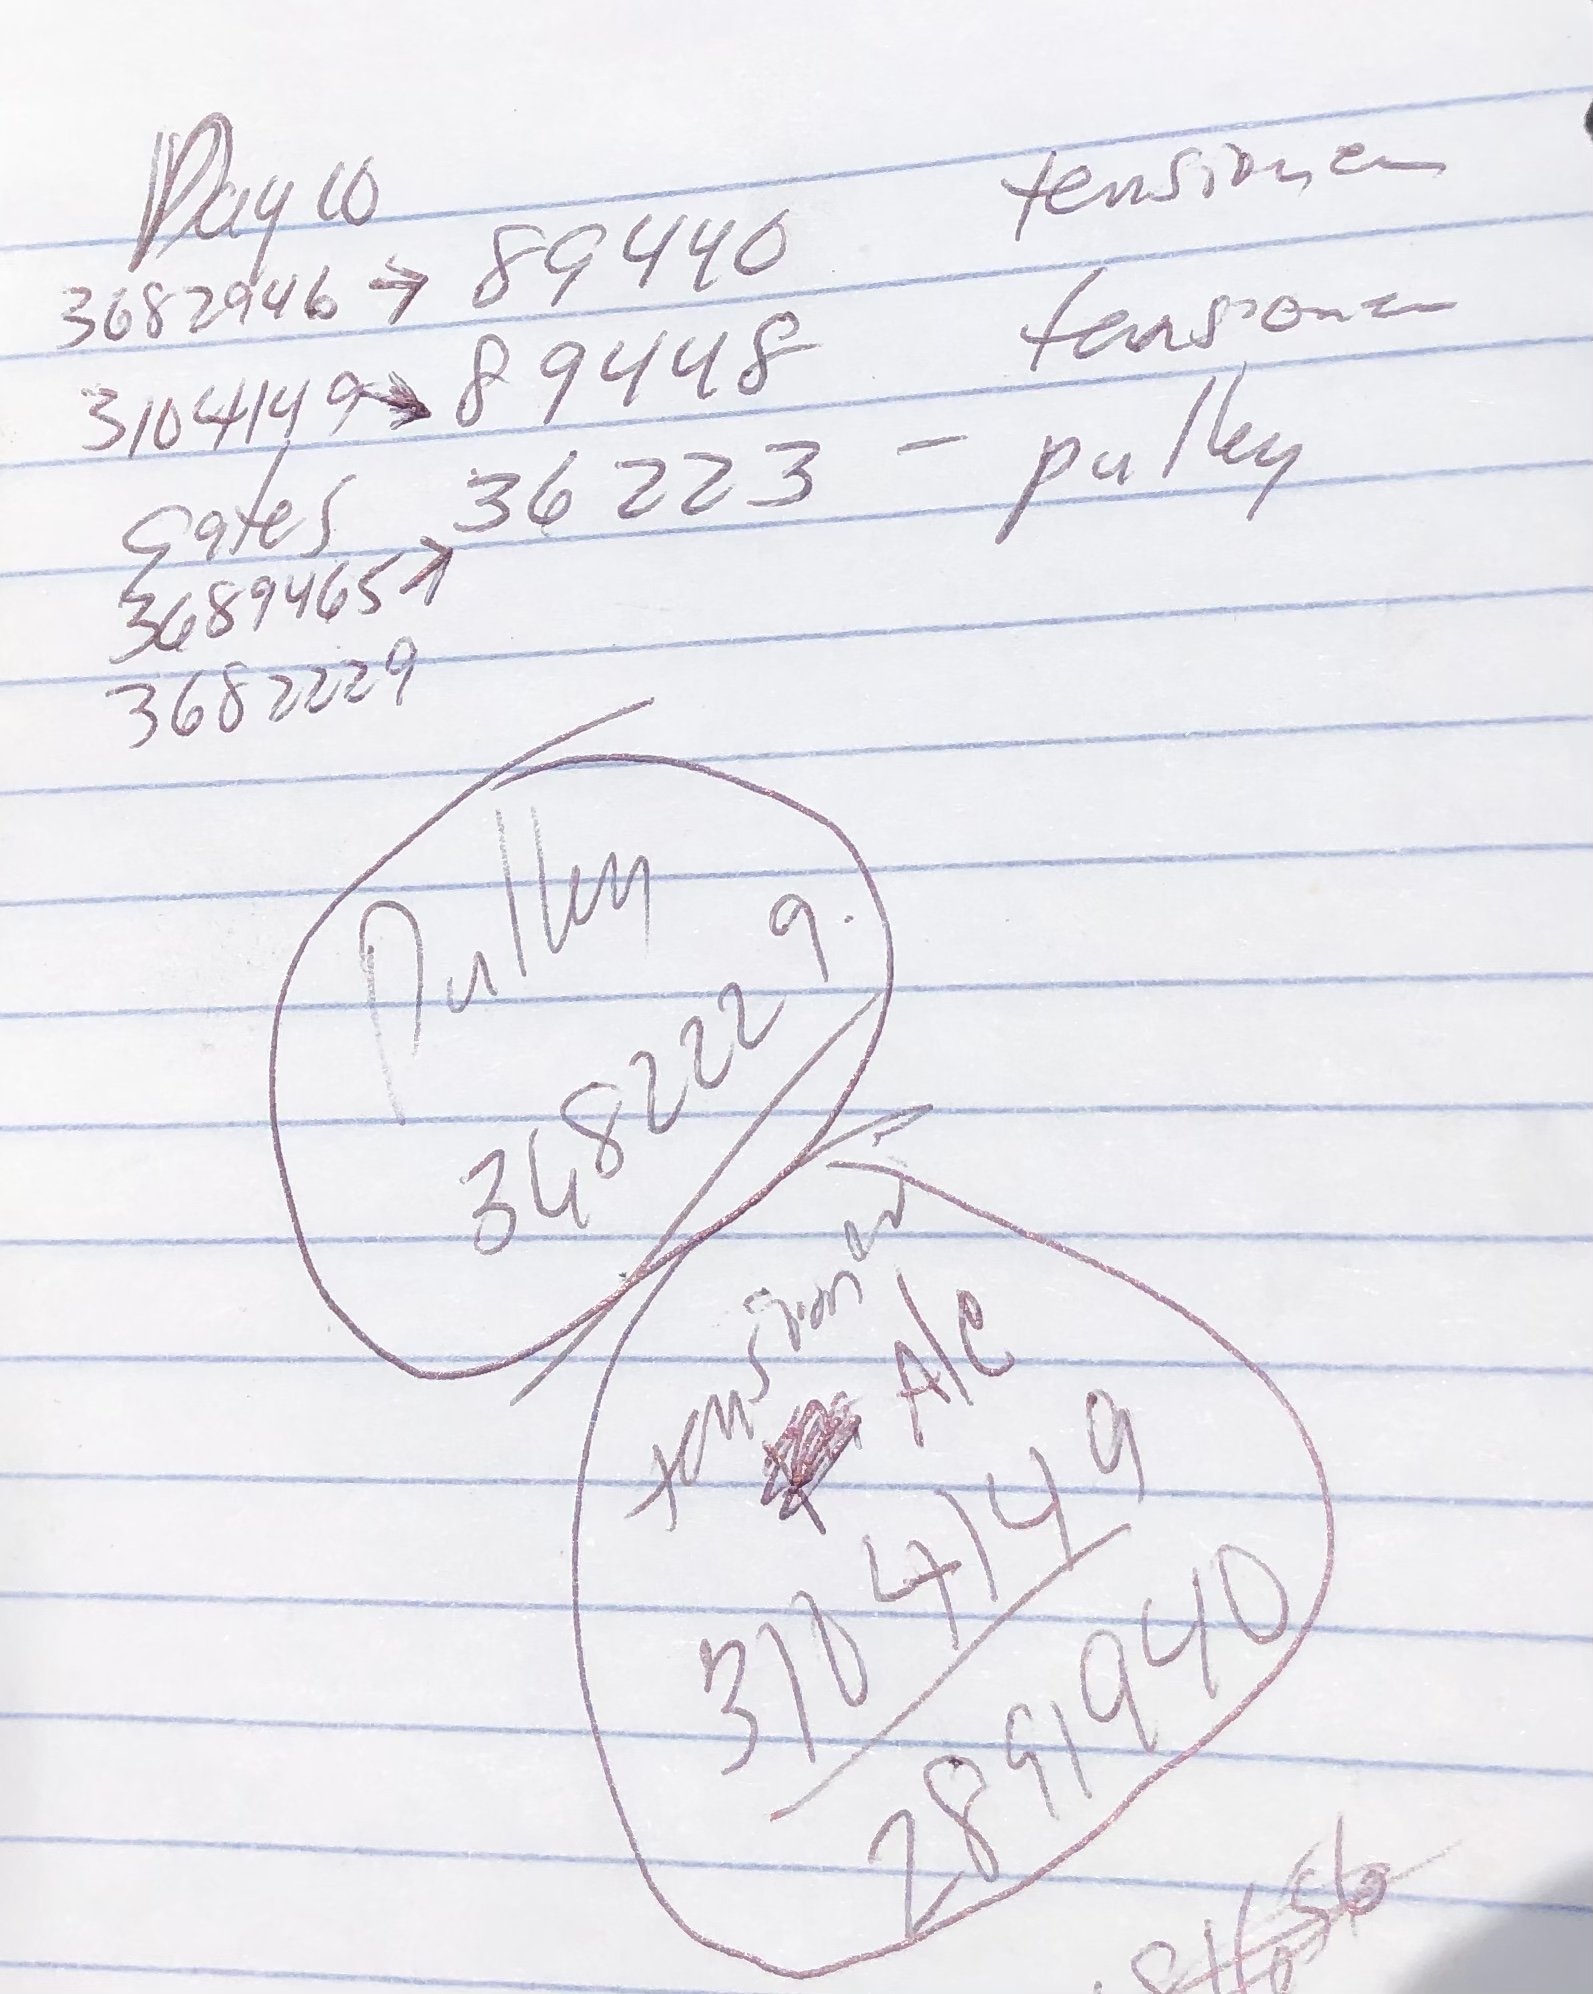 Dayco
3682946 → 89440 tensioner
3104149 → 89448 tensioner
Gates 36223 - pulley
3689465 →
3682229
Pulley
3682229.
tensioner
A/C
3104149
2891940